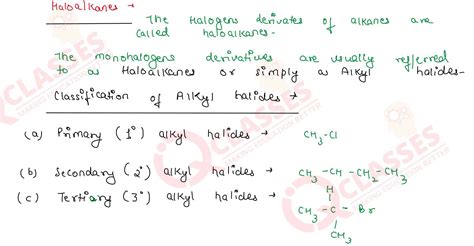 Haloalkanes →
The Halogens derivates of alkanes are
called haloalkanes-
The monohalogens derivatives are usually reffered
to as Haloalkanes or simply as Alkyl halides-
Classification of Alkyl halides →
(a) Primary (1°) alkyl halides → CH₃-Cl
(b) Secondary (2°) alkyl halides → CH₃ - CH - CH₂ - CH₃
(c) Tertiary (3°) alkyl halides →
H
CH₃ - C - Br
CH₃
CLASSES
CLASSES
CLASSES